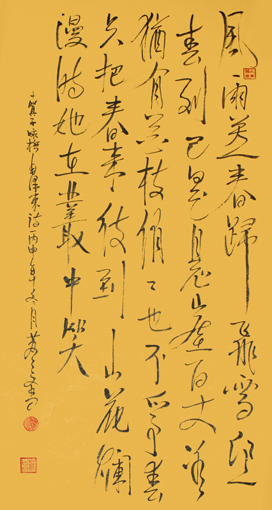 風雨送春歸飛雪迎
春到已是懸崖百丈冰
猶有花枝俏俏也不爭春
只把春来報待到山花爛
漫時她在叢中笑
卜算子咏梅毛澤東詩丙申年冬月